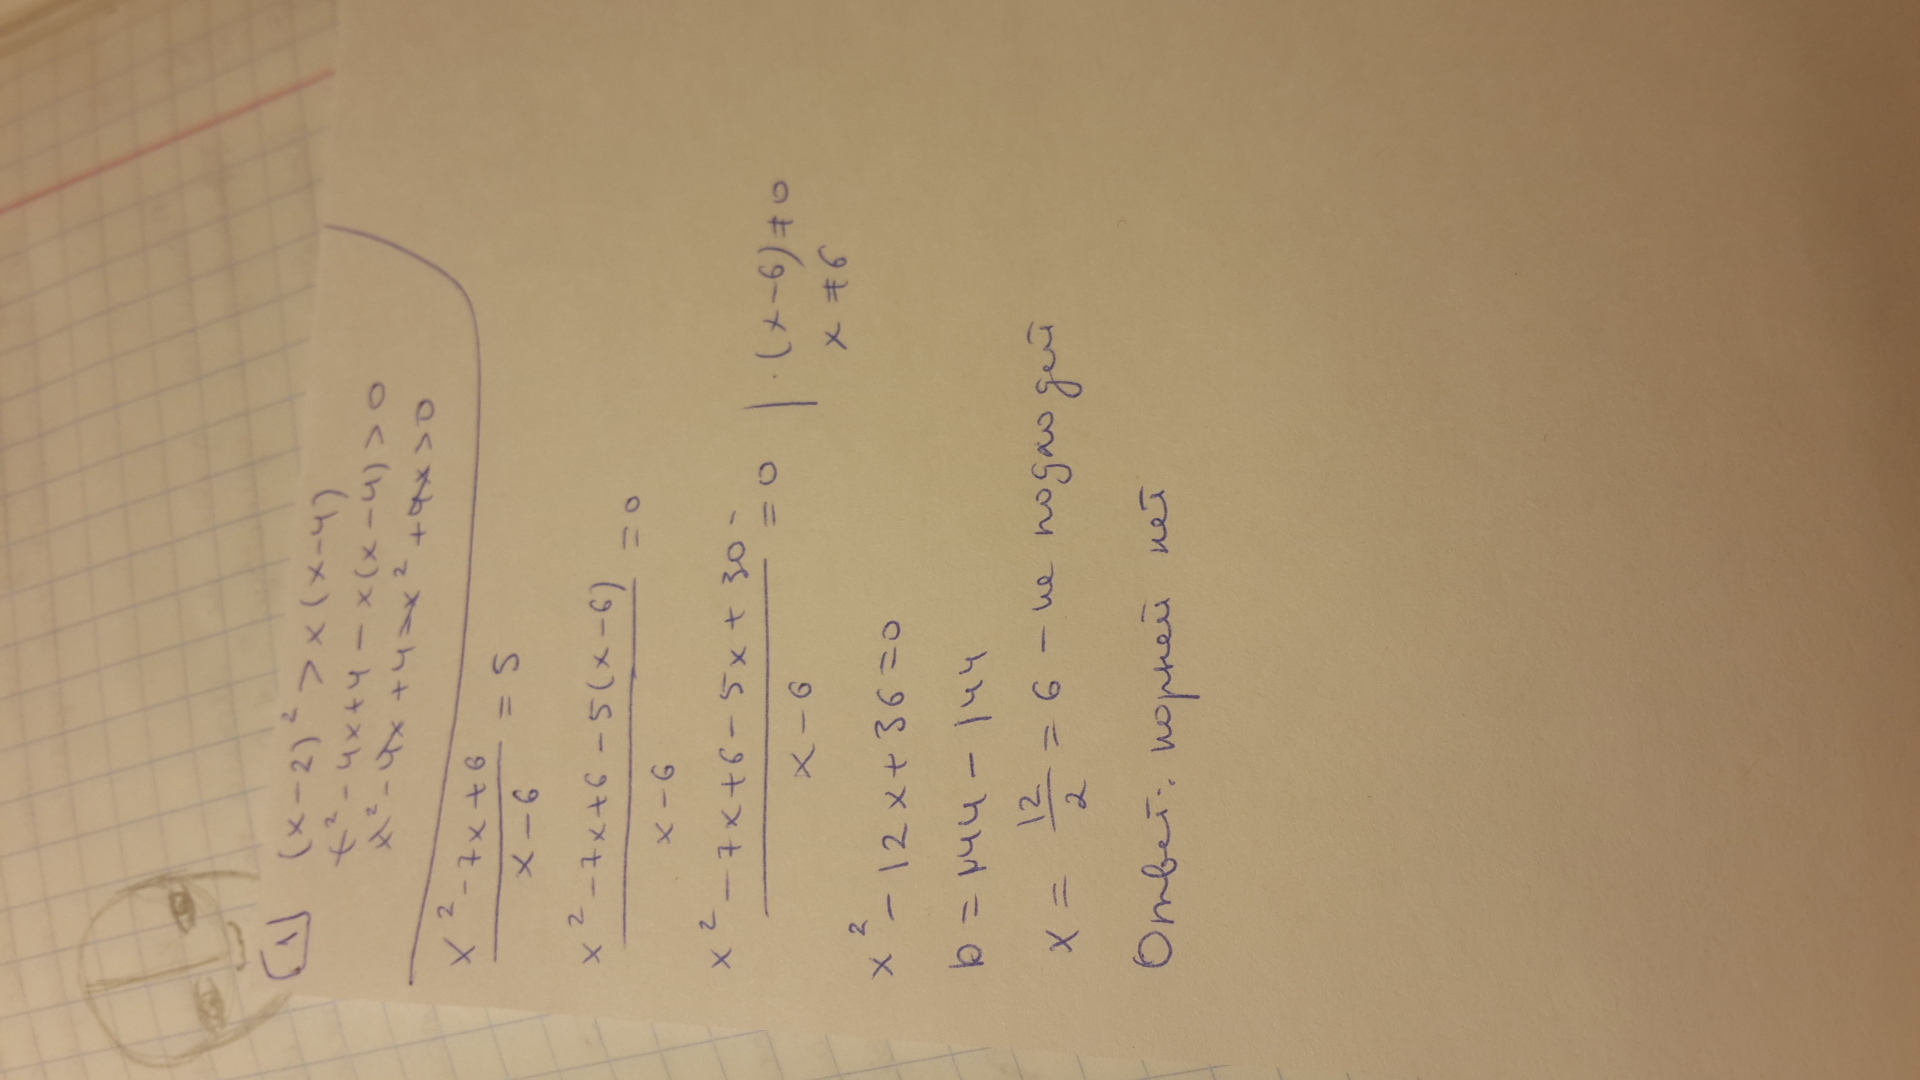 [1] (x-2)² > x(x-4)
x²-4x+4-x(x-4)>0
x²-4x+4-x²+4x>0
x²-7x+6
x-6
=5
x²-7x+6-5(x-6)
x-6
=0
x²-7x+6-5x+30
x-6
=0 | ·(x-6)≠0
x≠6
x²-12x+36=0
D=144-144
x=12/2=6 - не подходит
Ответ: корней нет